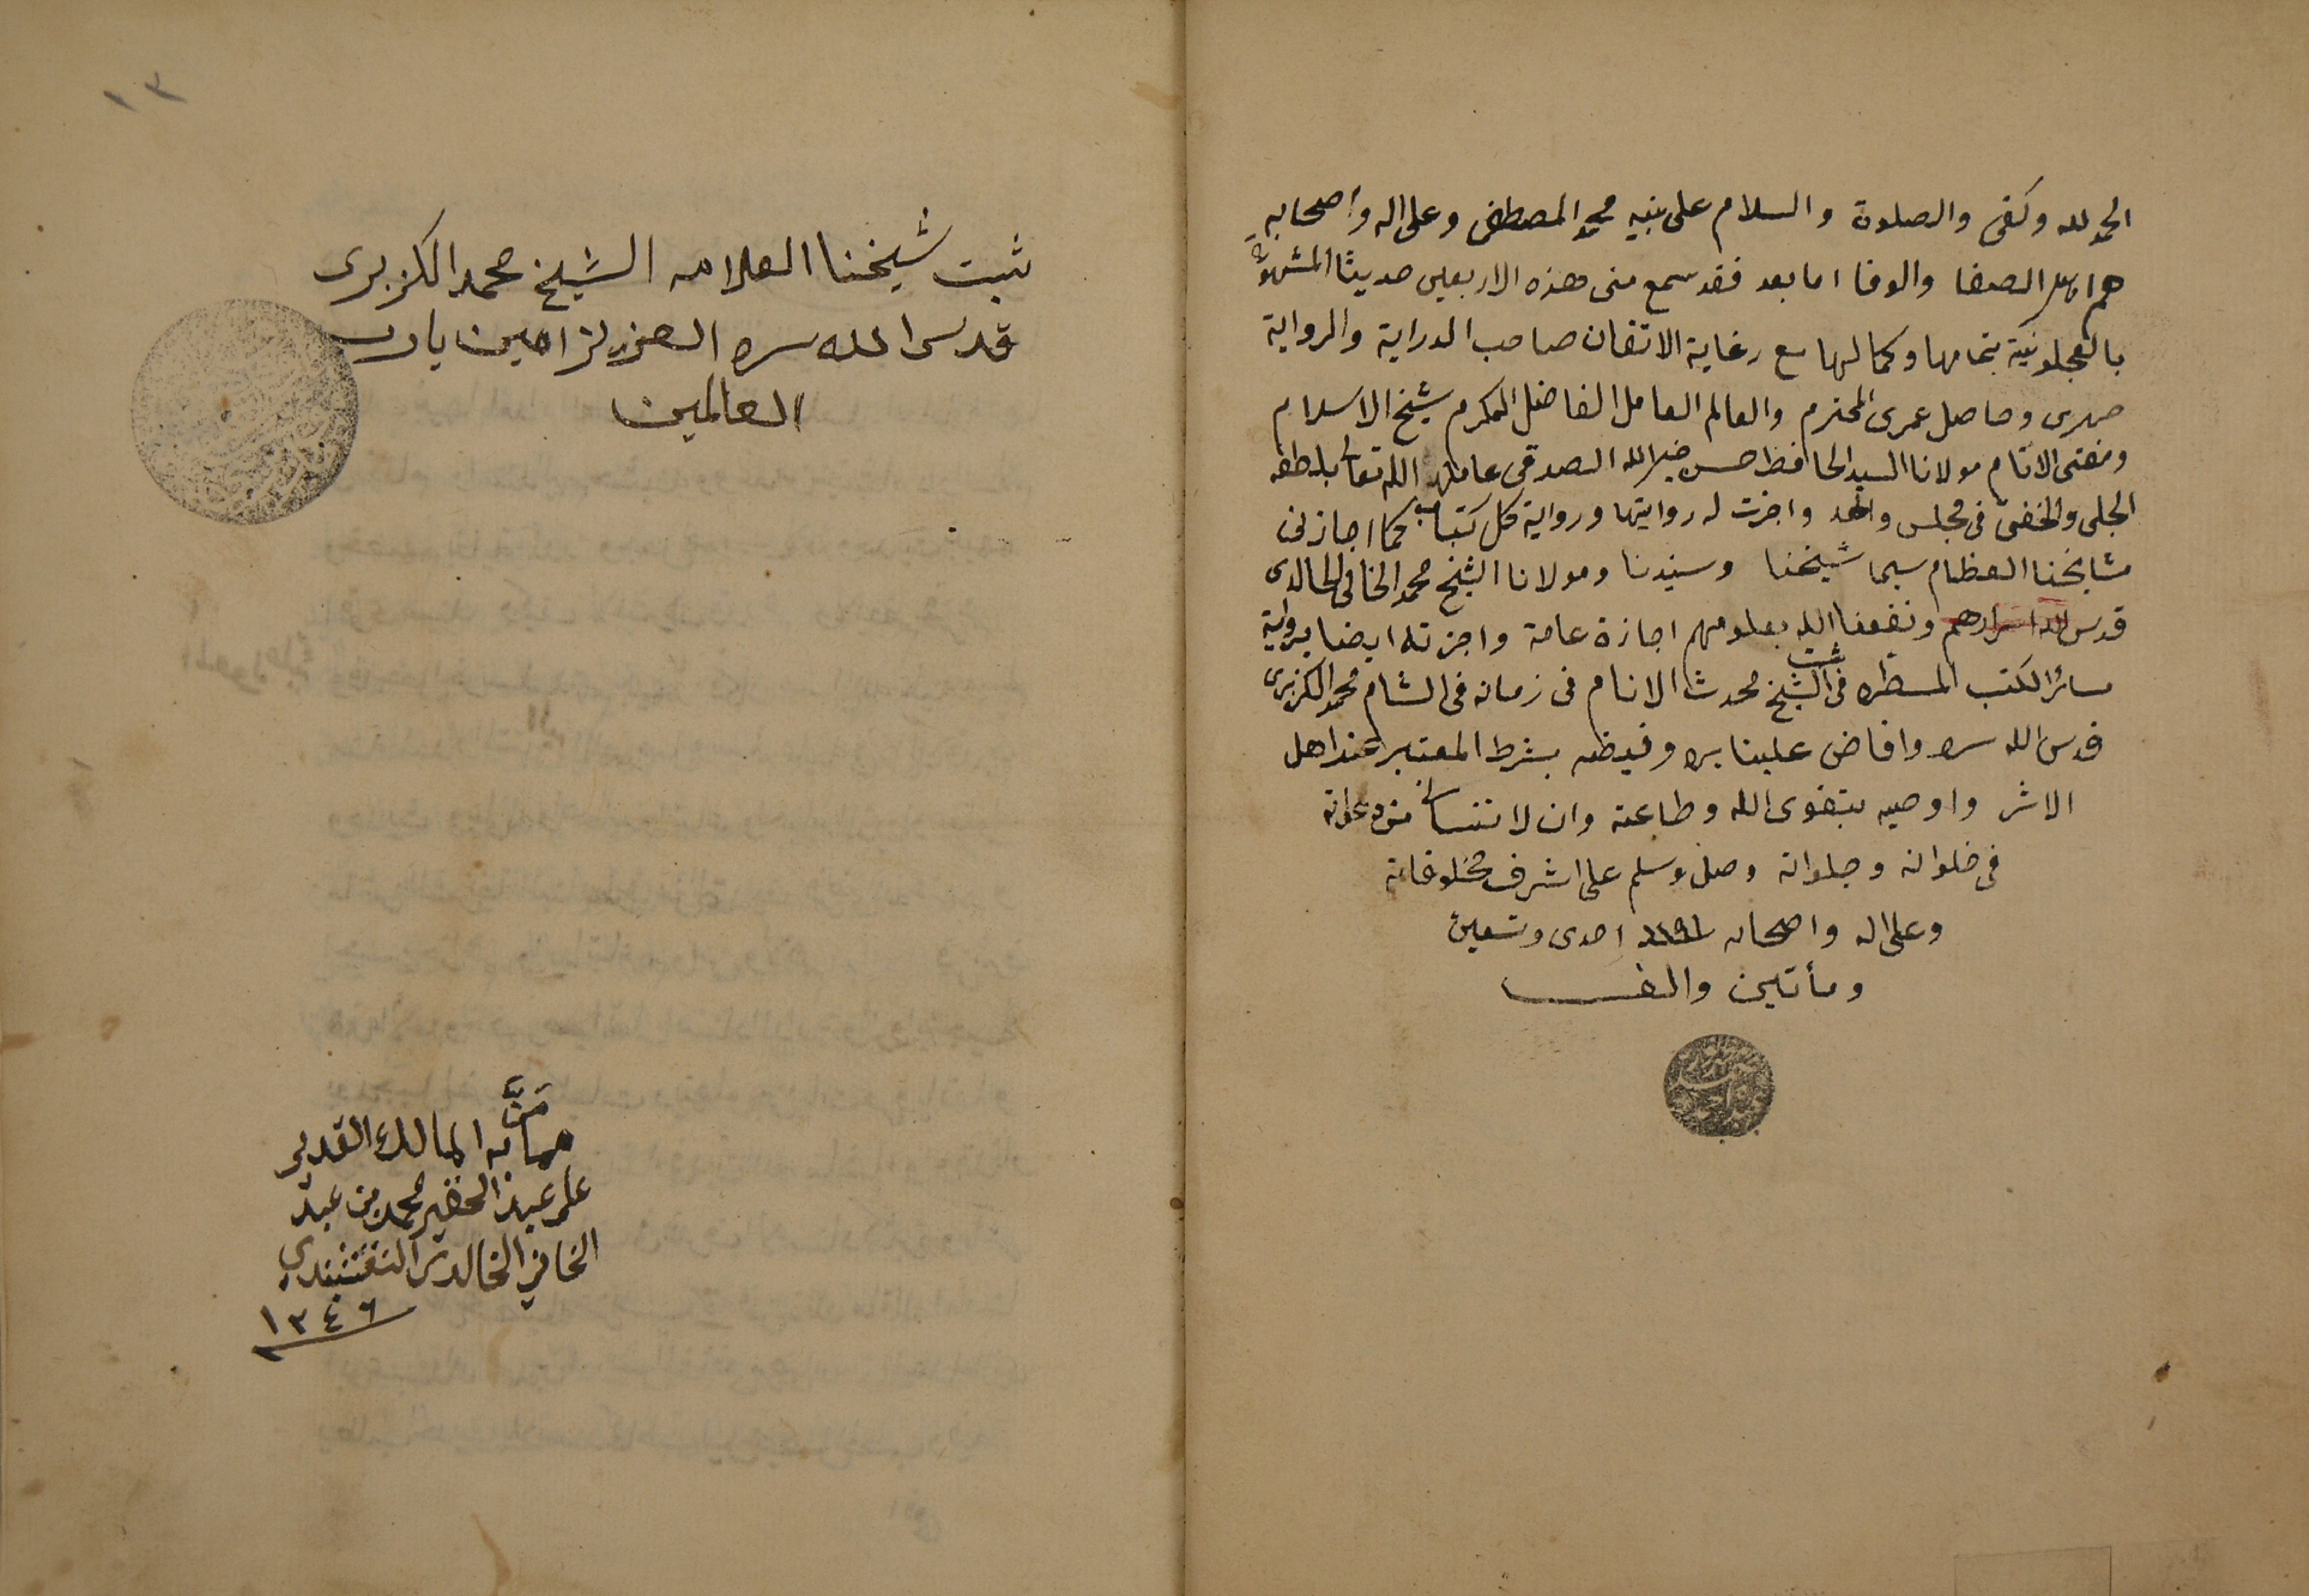 الحمد لله وكفى والصلوة والسلام على نبيه محمد المصطفى وعلى اله واصحابه
هم اهل الصفا والوفا اما بعد فقد سمع منى هذه الاربعين حديثا المشهورة
بالعجلونية بتمامها وكمالها مع رغاية الاتقان صاحب الدراية والرواية
صهرى وحاصل عمرى المحترم والعالم العامل الفاضل المكرم شيخ الاسلام
ومفتى الانام مولانا السيد الحافظ حسن خير الله الصدقى عاملهم الله تعالى بلطفه
الجلى والخفى فى مجلس واحد واجزت له روايتها ورواية كل كتاب كما اجازنى
مشايخنا العظام سيما شيخنا وسيدنا ومولانا الشيخ محمد الخافى الخالدى
قدس الله اسرارهم ونفعنا الله بعلومهم اجازة عامة واجزته ايضا برواية
سائر الكتب المسطره فى ثبت الشيخ محدث الانام فى زمانه فى الشام محمد الكزبرى
قدس الله سره وافاض علينا بره وفيضه بشرط المعتبر عند اهل
الاثر واوصيه بتقوى الله وطاعته وان لا تنسانى من دعواته
فى خلواته وجلواته وصل وسلم على اشرف مخلوقاته
وعلى اله واصحابه احدى وتسعين
ومأتين والف
١٣
ثبت شيخنا العلامه الشيخ محمد الكزبرى
قدس الله سره العزيز امين يا رب
العالمين
مما مَنَّ به المالك القدير
على عبده الحقير محمد بن عبد
الخافي الخالدى النقشبندي
١٣٤٦